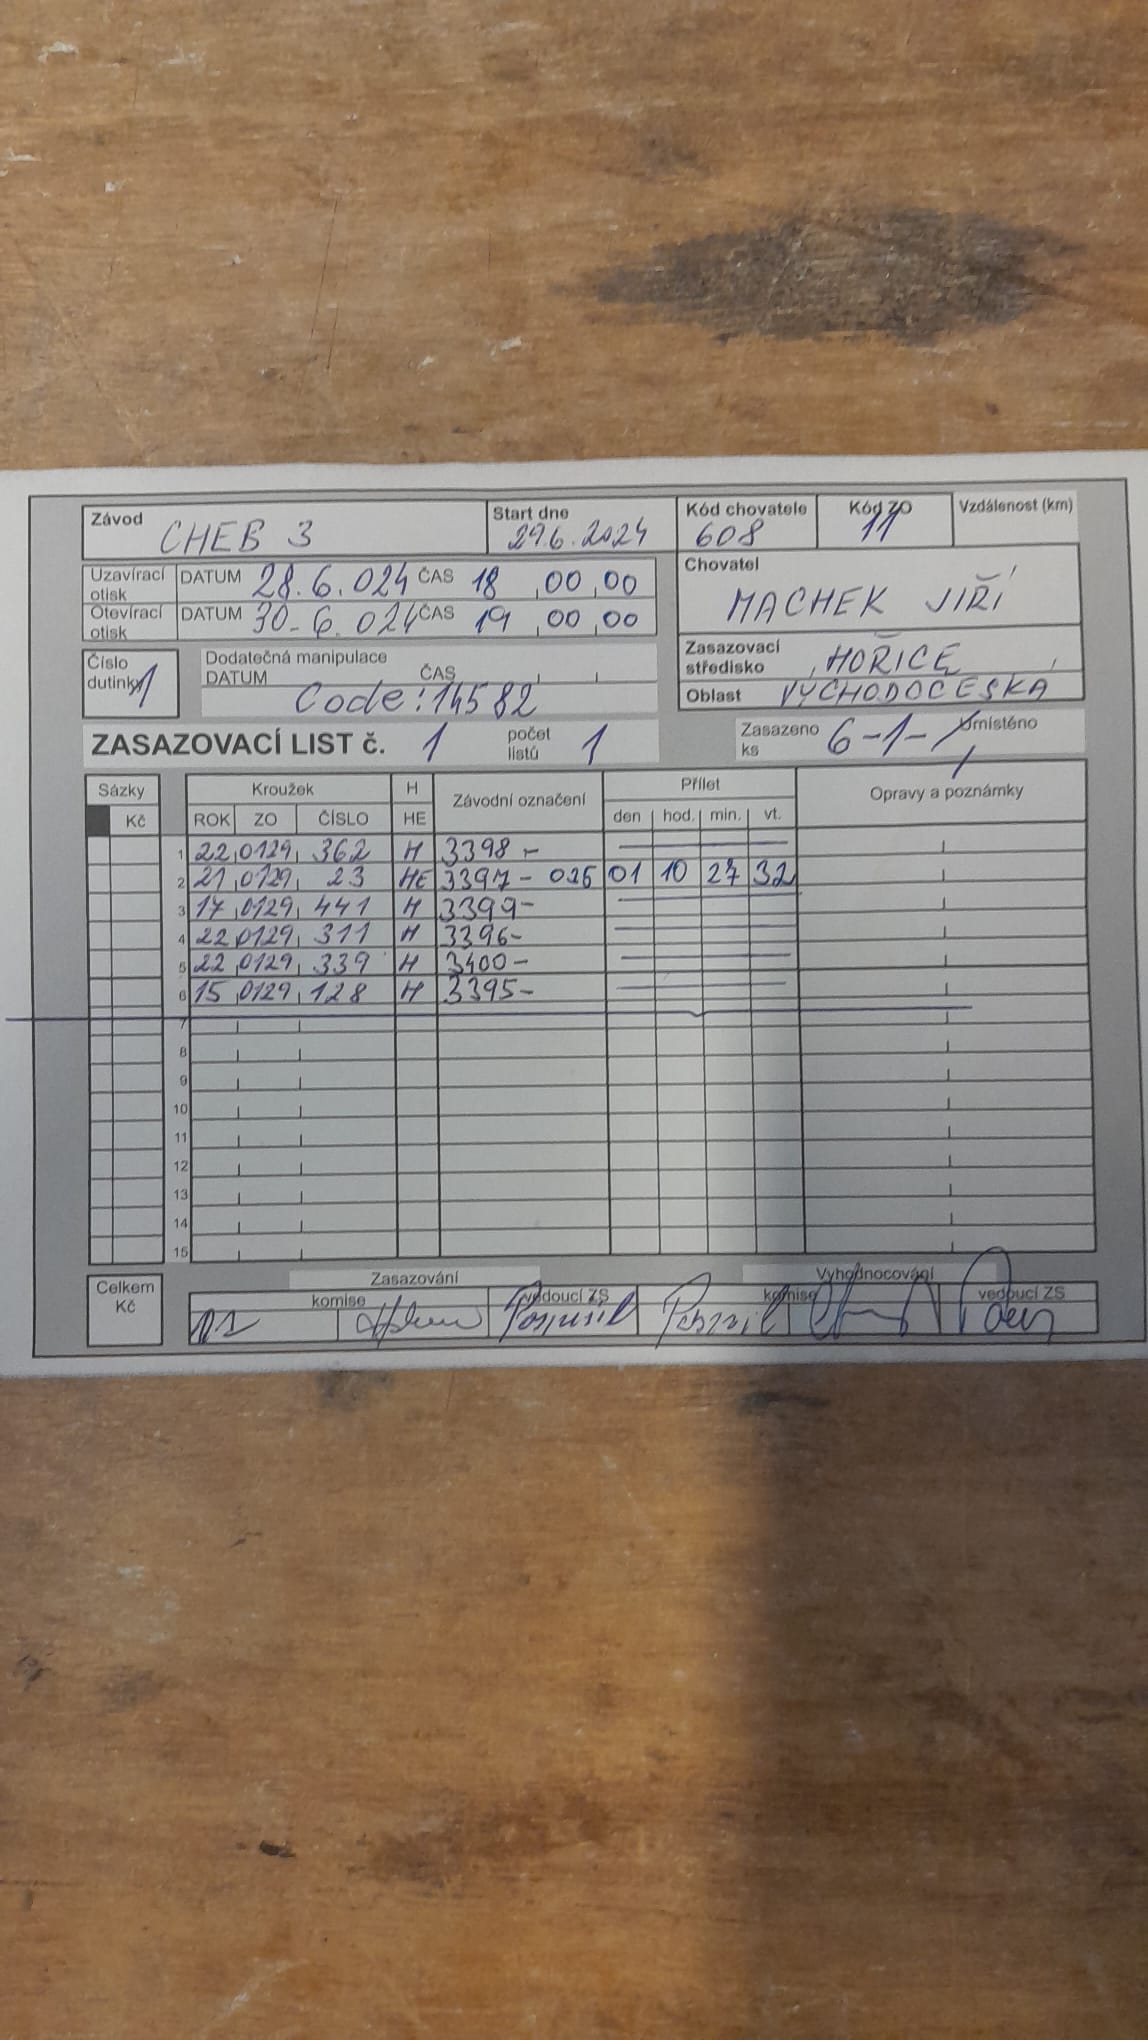 Závod CHEB 3 Start dne 29.6.2024 Kód chovatele 608 Kód ZO 11 Vzdálenost (km)
Uzavírací otisk DATUM 28.6.024 ČAS 18 00 00
Otevírací otisk DATUM 30-6.024 ČAS 19 00 00
Chovatel
MACHEK JIŘÍ
Číslo dutinky 1
Dodatečná manipulace
DATUM ČAS
Code: 14582
Zasazovací středisko HOŘICE
Oblast VÝCHODOČESKÁ
ZASAZOVACÍ LIST č. 1 počet listů 1 Zasazeno ks 6-1- Umístěno
Sázky Kroužek H Závodní označení Přílet Opravy a poznámky
Kč ROK ZO ČÍSLO HE den hod. min. vt.
1 22 0129 362 H 3398 -
2 21 0129 23 HE 3397 - 026 01 10 27 32
3 17 0129 441 H 3399-
4 22 0129 311 H 3396-
5 22 0129 339 H 3400-
6 15 0129 128 H 3395-
7
8
9
10
11
12
13
14
15
Celkem Kč
Zasazování Vyhodnocování
komise vedoucí ZS komise vedoucí ZS